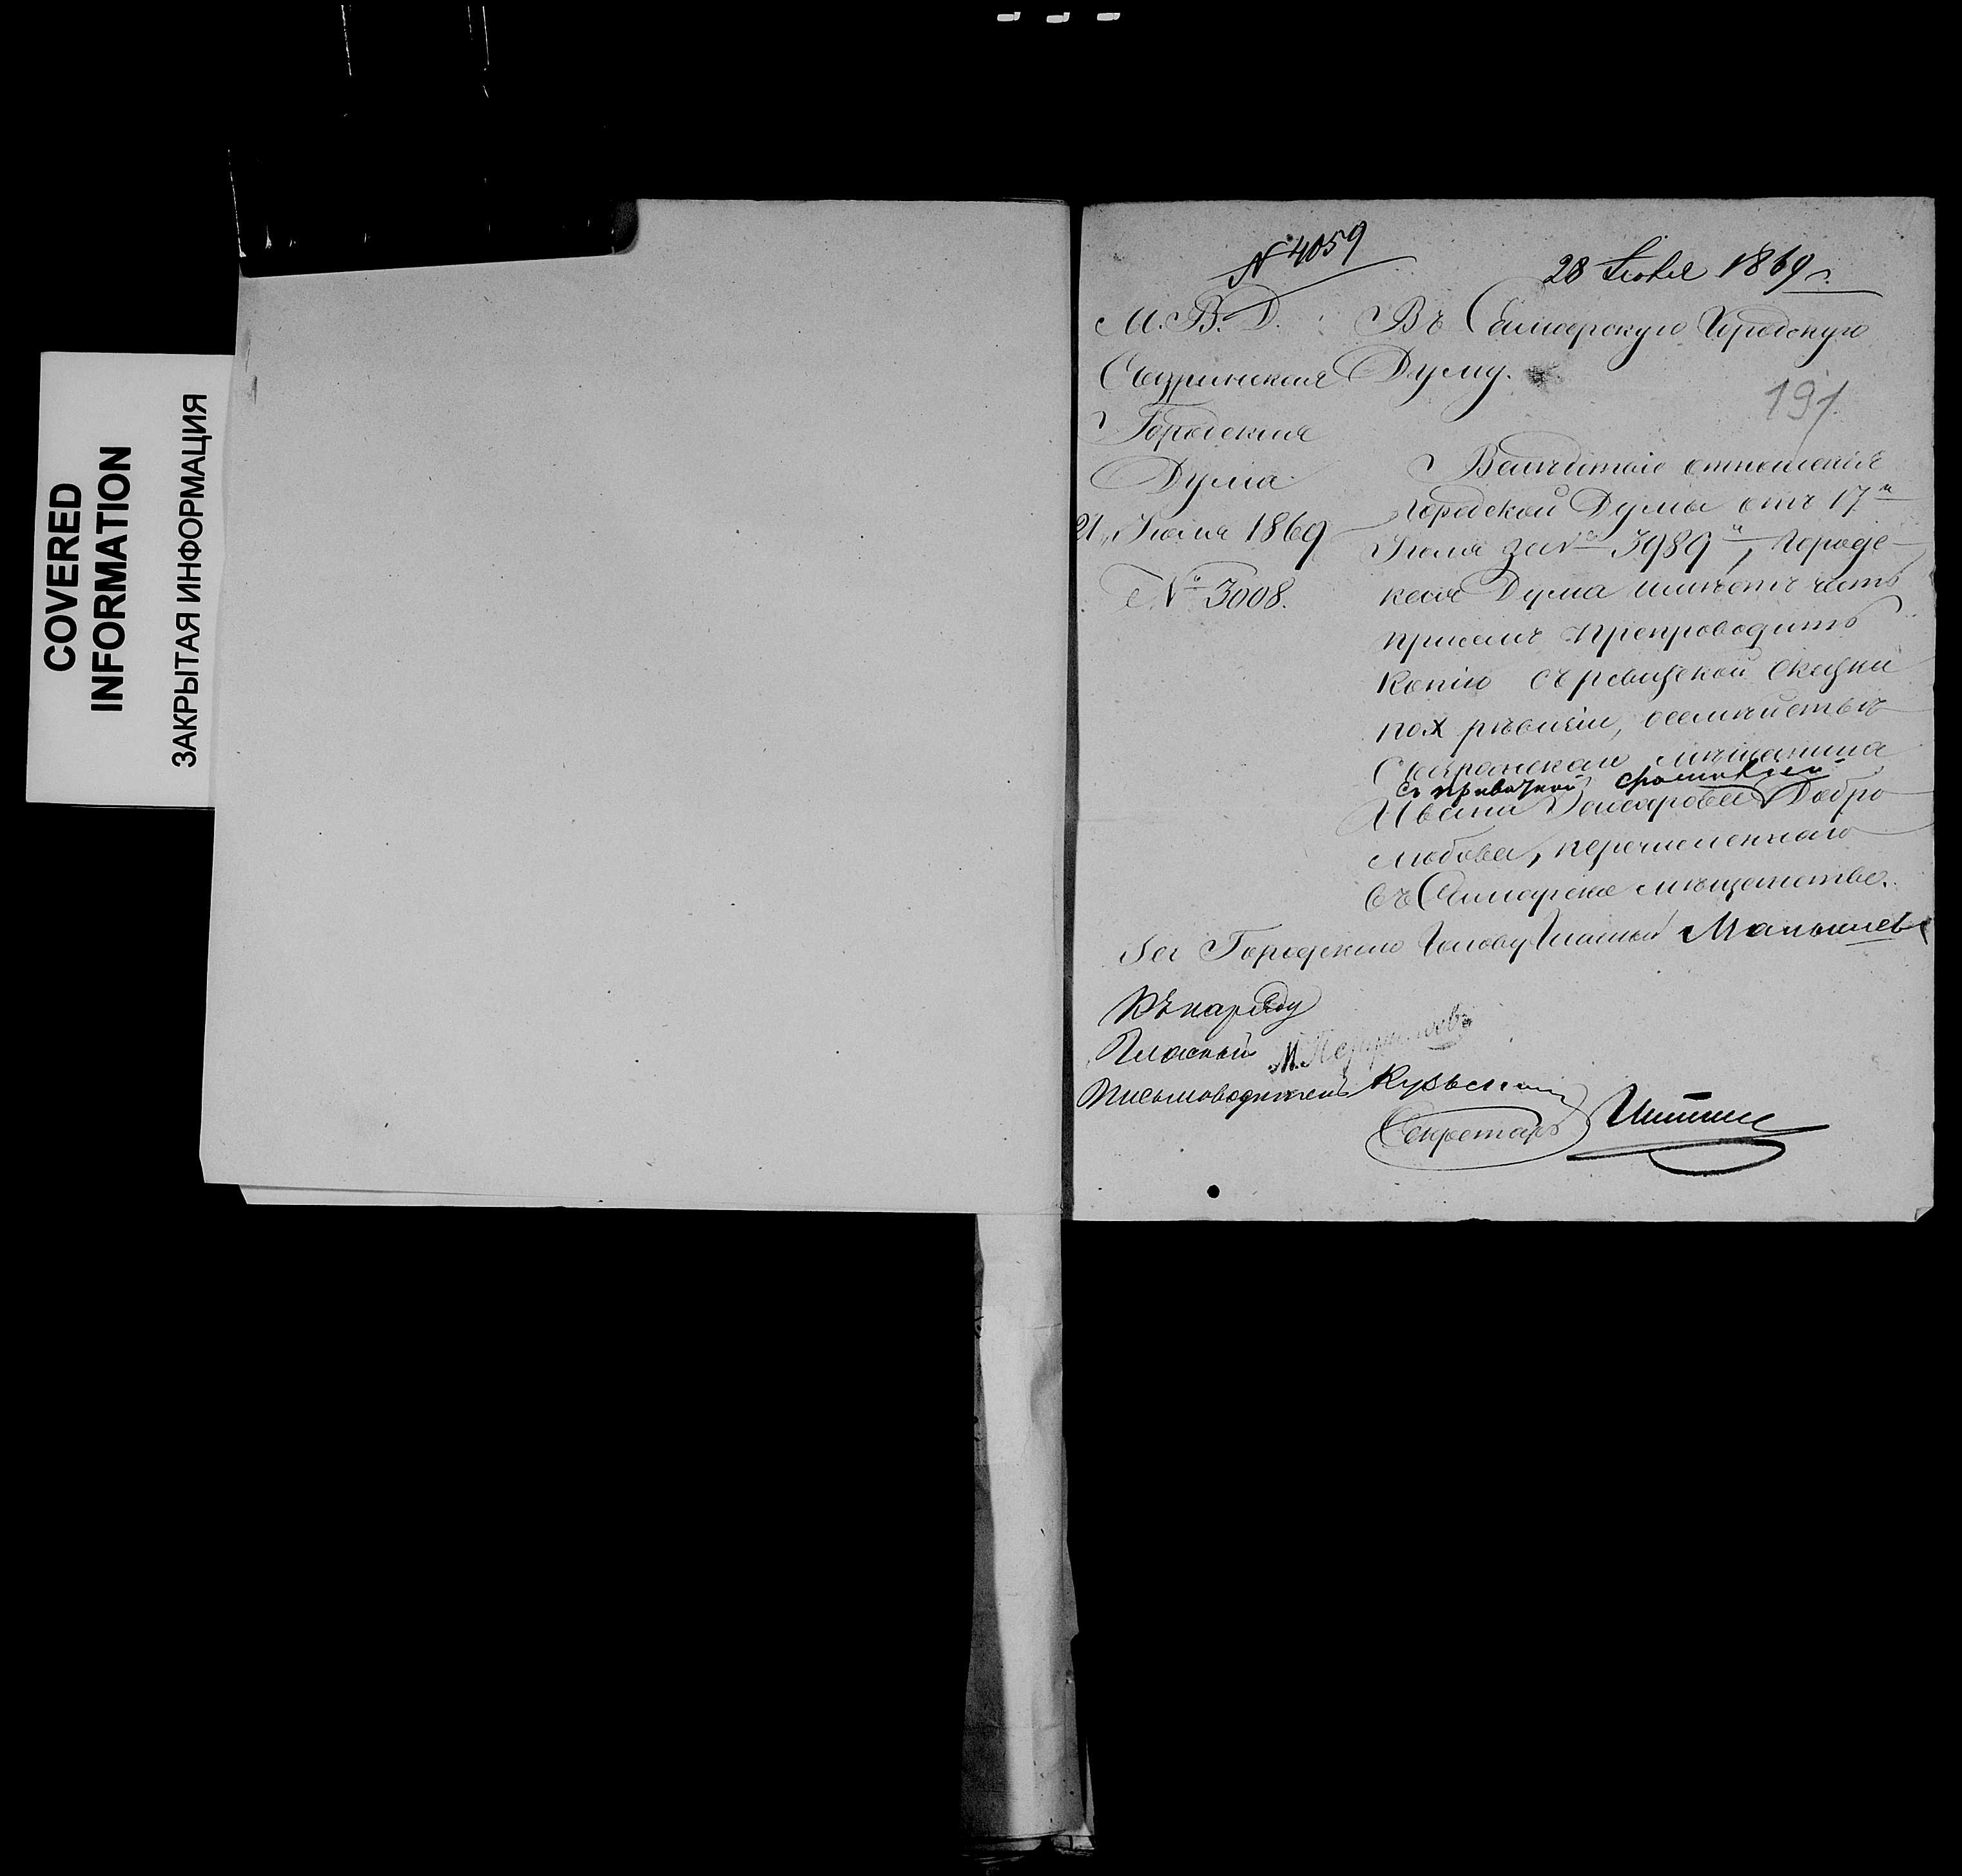 COVERED
INFORMATION
ЗАКРЫТАЯ ИНФОРМАЦИЯ
№ 4059
28 Июля 1869 г.
М. В. Д.
Сызранская
Городская
Дума.
21 Июля 1869
№ 3008.
Въ Самарскую Городскую
Думу.
191
Вслѣдствіе отношенія
Городской Думы отъ 17го
Іюля за № 3989й, Городс-
кая Дума имѣетъ честь
при семъ препроводить
копію съ ревизской сказки
по X ревизіи, о семействѣ
Сызранскаго мѣщанина
съ прибавкой фамиліи
Ивана Добро-
любова, перечисленнаго
въ Самарское мѣщанство.
За Городскаго Голову Гласный Малышев
Къ наряду
Гласный М.
Письмоводитель
Секретарь